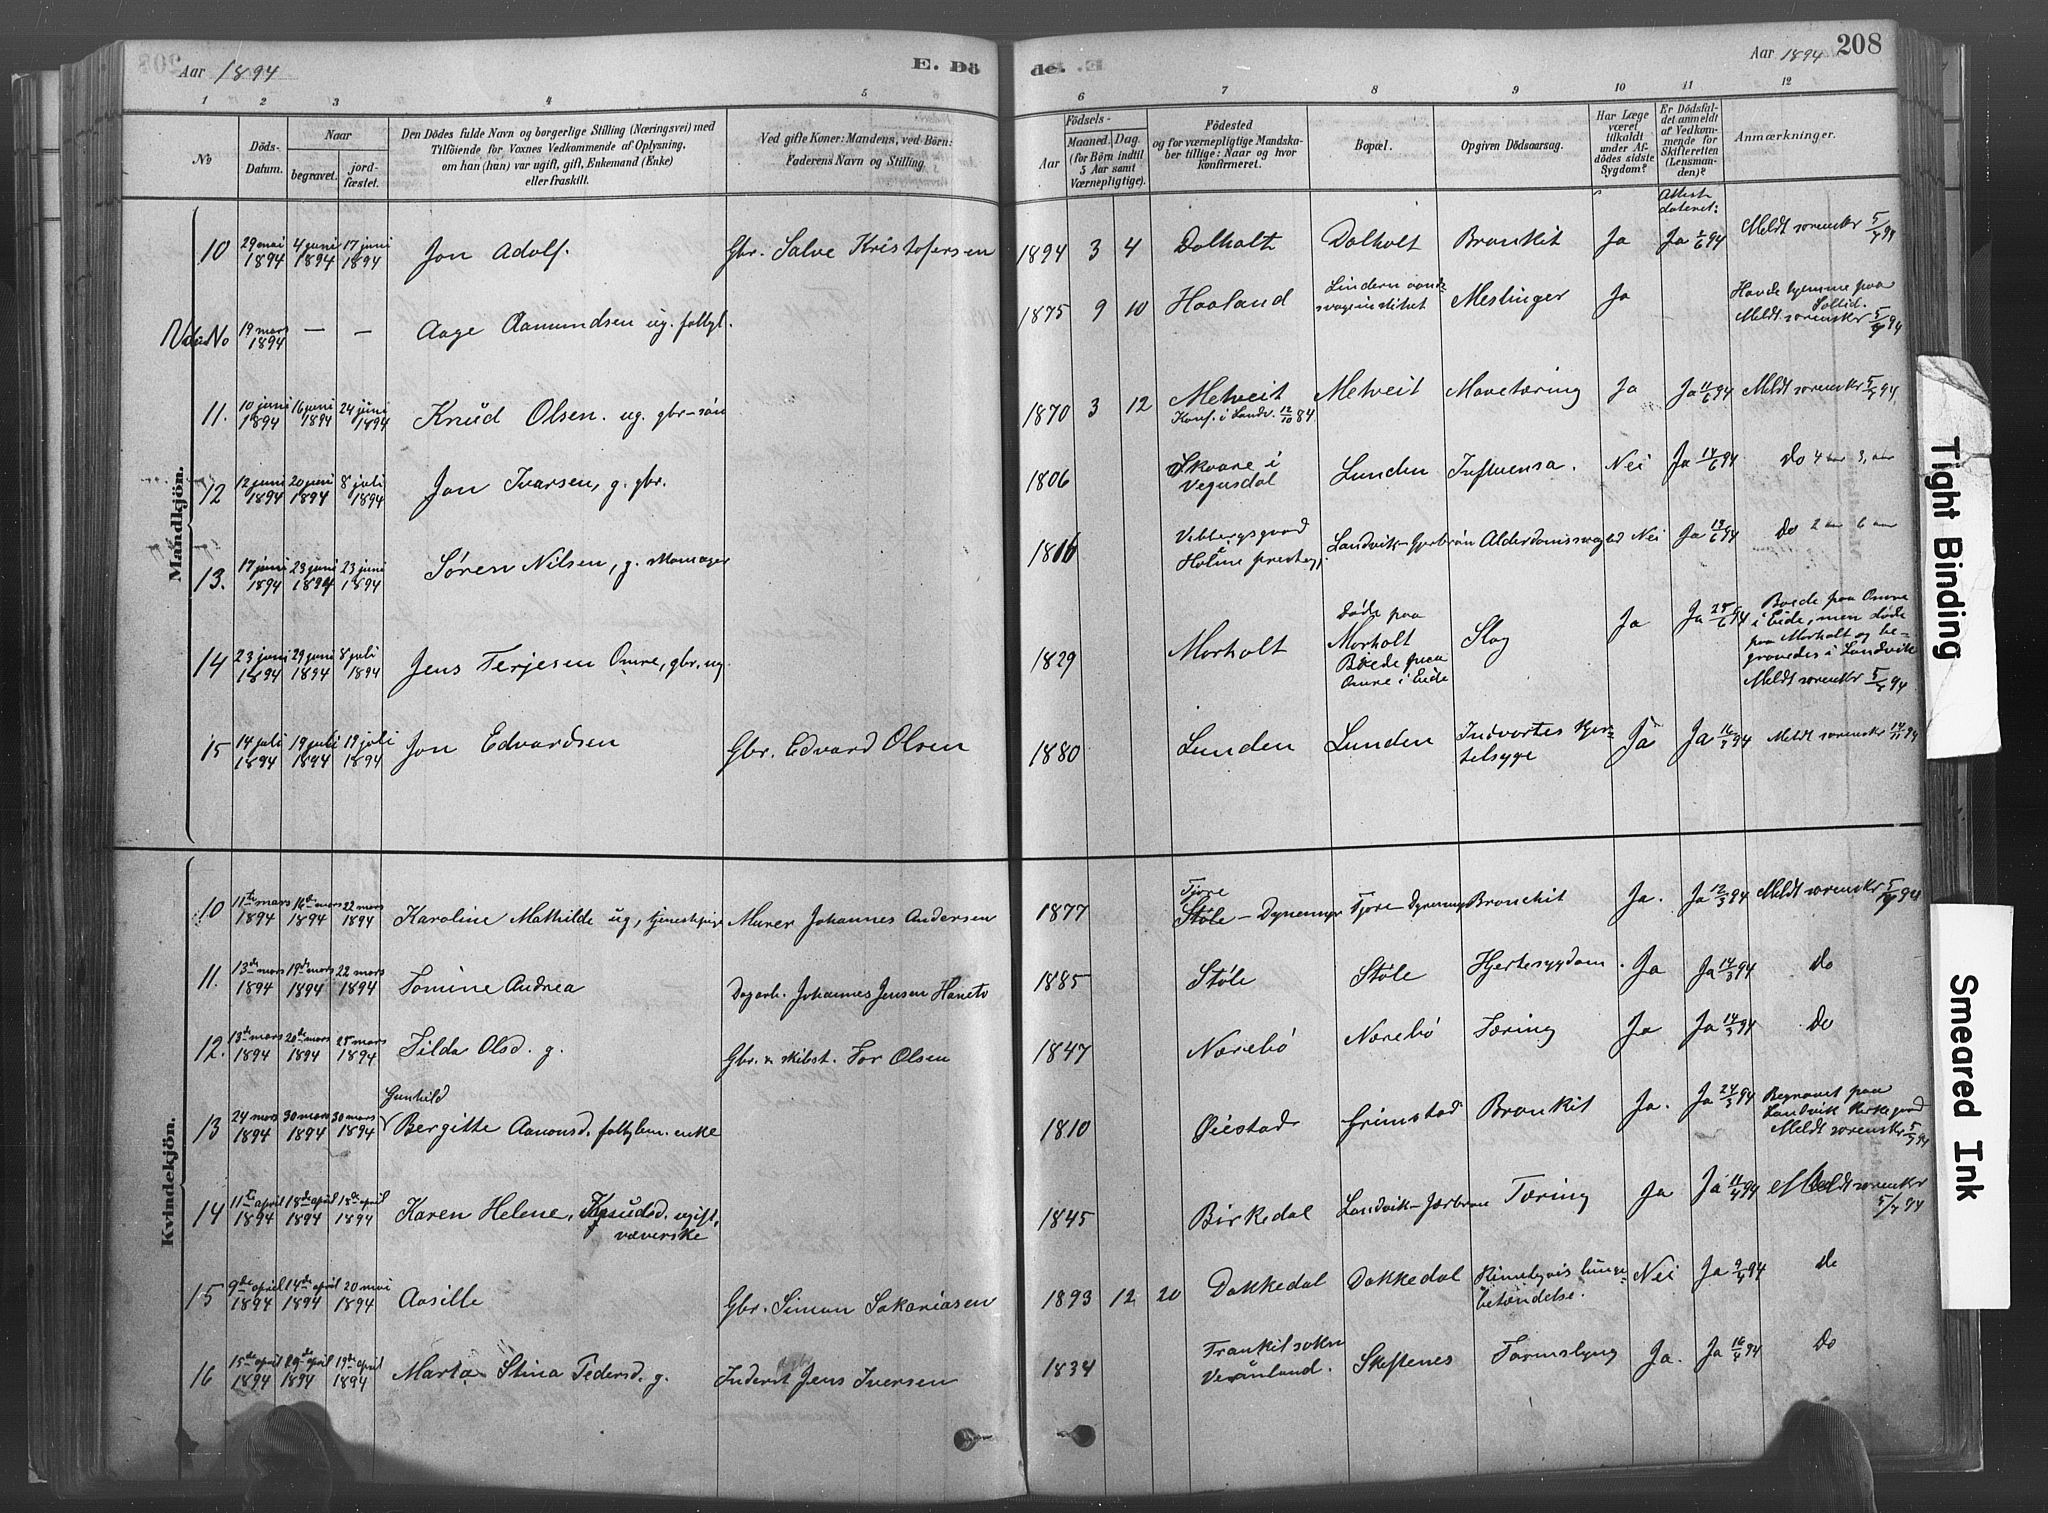 Aar 1894
E. Dö
de. E.
Aar 1894
208
1 2 3 4 5 6 7 8 9 10 11 12
No
Döds-Datum.
Naar
begravet.
jord-fæstet.
Den Dödes fulde Navn og borgerlige Stilling (Næringsvei) med
Tilföiende for Voxnes Vedkommende af Oplysning.
om han (hun) var ugift, gift, Enkemand (Enke)
eller fraskilt.
Ved gifte Koner: Mandens, ved Börn:
Faderens Navn og Stilling.
Födsels-
Aar
Maaned. Dag.
(for Börn indtil
5 Aar samt
Værnepligtige).
Födested
og for værnepligtige Mandska-
ber tillige: Naar og hvor
konfirmeret.
Bopæl.
Opgiven Dödsaarsag.
Har Læge
været
tilkaldt
under Af-
dödes sidste
Sygdom?
Er Dödsfal-
det anmeldt
af Vedkom-
mende for
Skifteretten
(Lensman-
den)?
Anmærkninger.
Attest
dateret:
Mandkjön.
10 29 mai 1894 4 juni 1894 17 juni 1894 Jon Adolf. Gbr. Salve Kristofersen 1894 3 4 Dalholt Dalholt Bronkit Ja Ja 2/6 94 Meldt sorenskr 5/7 94
19 mars 1894 — — Aage Aamundsen ug. 1875 9 10 Haaland Meslinger Ja Havde hjemme paa
Meldt sorenskr 5/7 94
11. 10 juni 1894 16 juni 1894 24 juni 1894 Knud Olsen. ug. gbr-søn 1870 3 12 Metveit
Konf. i Landv. 12/10 84. Metveit Mavetæring Ja Ja 11/6 94 Meldt sorenskr 5/7 94
12 12 juni 1894 20 juni 1894 8 juli 1894 Jon Ivarsen, g. gbr. 1806 Skaare i
Vegusdal Lunden Influensa. Nei Ja 14/6 94 Do
13. 17 juni 1894 23 juni 1894 23 juni 1894 Søren Nilsen, g. 1816
Holme prestegj. Nei Ja 19/6 94 Do
14 23 juni 1894 29 juni 1894 8 juli 1894 Jens Terjesen Omre, gbr. ug. 1829 Morholt Døde paa
Morholt
Boede paa
Omre i Eide Slag Ja Ja 25/6 94 Boede paa Omre
i Eide, men døde
paa Morholt og be-
gravedes i Landvik
Meldt sorenskr 5/7 94
15 14 juli 1894 19 juli 1894 19 juli 1894 Jon Edvardsen Gbr. Edvard Olsen 1880 Lunden Lunden Indvortes kjer-
telsyge Ja Ja 16/7 94 Meldt sorenskr
Kvindekjön.
10 11te mars 1894 16de mars 1894 22 mars 1894 Karoline Mathilde ug, tjenestepige Murer Johannes Andersen 1877 Fjære
Støle - Dynemyr Fjære - Dynemyr Bronchit Ja. Ja 12/3 94 Meldt sorenskr 5/7 94
11. 13de mars 1894 19de mars 1894 22 mars 1894 Tomine Andrea Dagarb. Johannes Jensen 1885 Støle Støle Hjertesygdom. Ja Ja 14/3 94 Do
12. 13de mars 1894 20de mars 1894 25 mars 1894 Tilda Olsd. g. Gbr. & skibst. Tor Olsen 1847 Nærebø Nærebø Tæring Ja Ja 14/3 94 Do
Gunhild
13 24 mars 1894 30 mars 1894 30 mars 1894 Bergitte Aanonsd. enke 1810 Øiestad Grimstad Bronkit Ja. Ja 24/3 94 Begravet paa
Landvik kirkegaard
Meldt sorenskr 5/7 94
14 11te april 1894 18de april 1894 18de april 1894 Karen Helene, Knudsd. ugift,
væverske 1845 Birkedal Tæring Ja Ja 11/4 94 Meldt sorenskr
5/7 94
15 9de april 1894 14de april 1894 20 mai 1894 Aasille Gbr. Simon Sakariasen 1893 12 20 Dakkedal Dakkedal Rimeligvis lunge-
betændelse. Nei Ja 9/4 94 Do
16 15de april 1894 20de april 1894 19de april 1894 Marta Stina Pedersd. g. Inderst Jens Iversen 1834 Skeftenes Ja. Ja 16/4 94 Do
Tight Binding
Smeared Ink